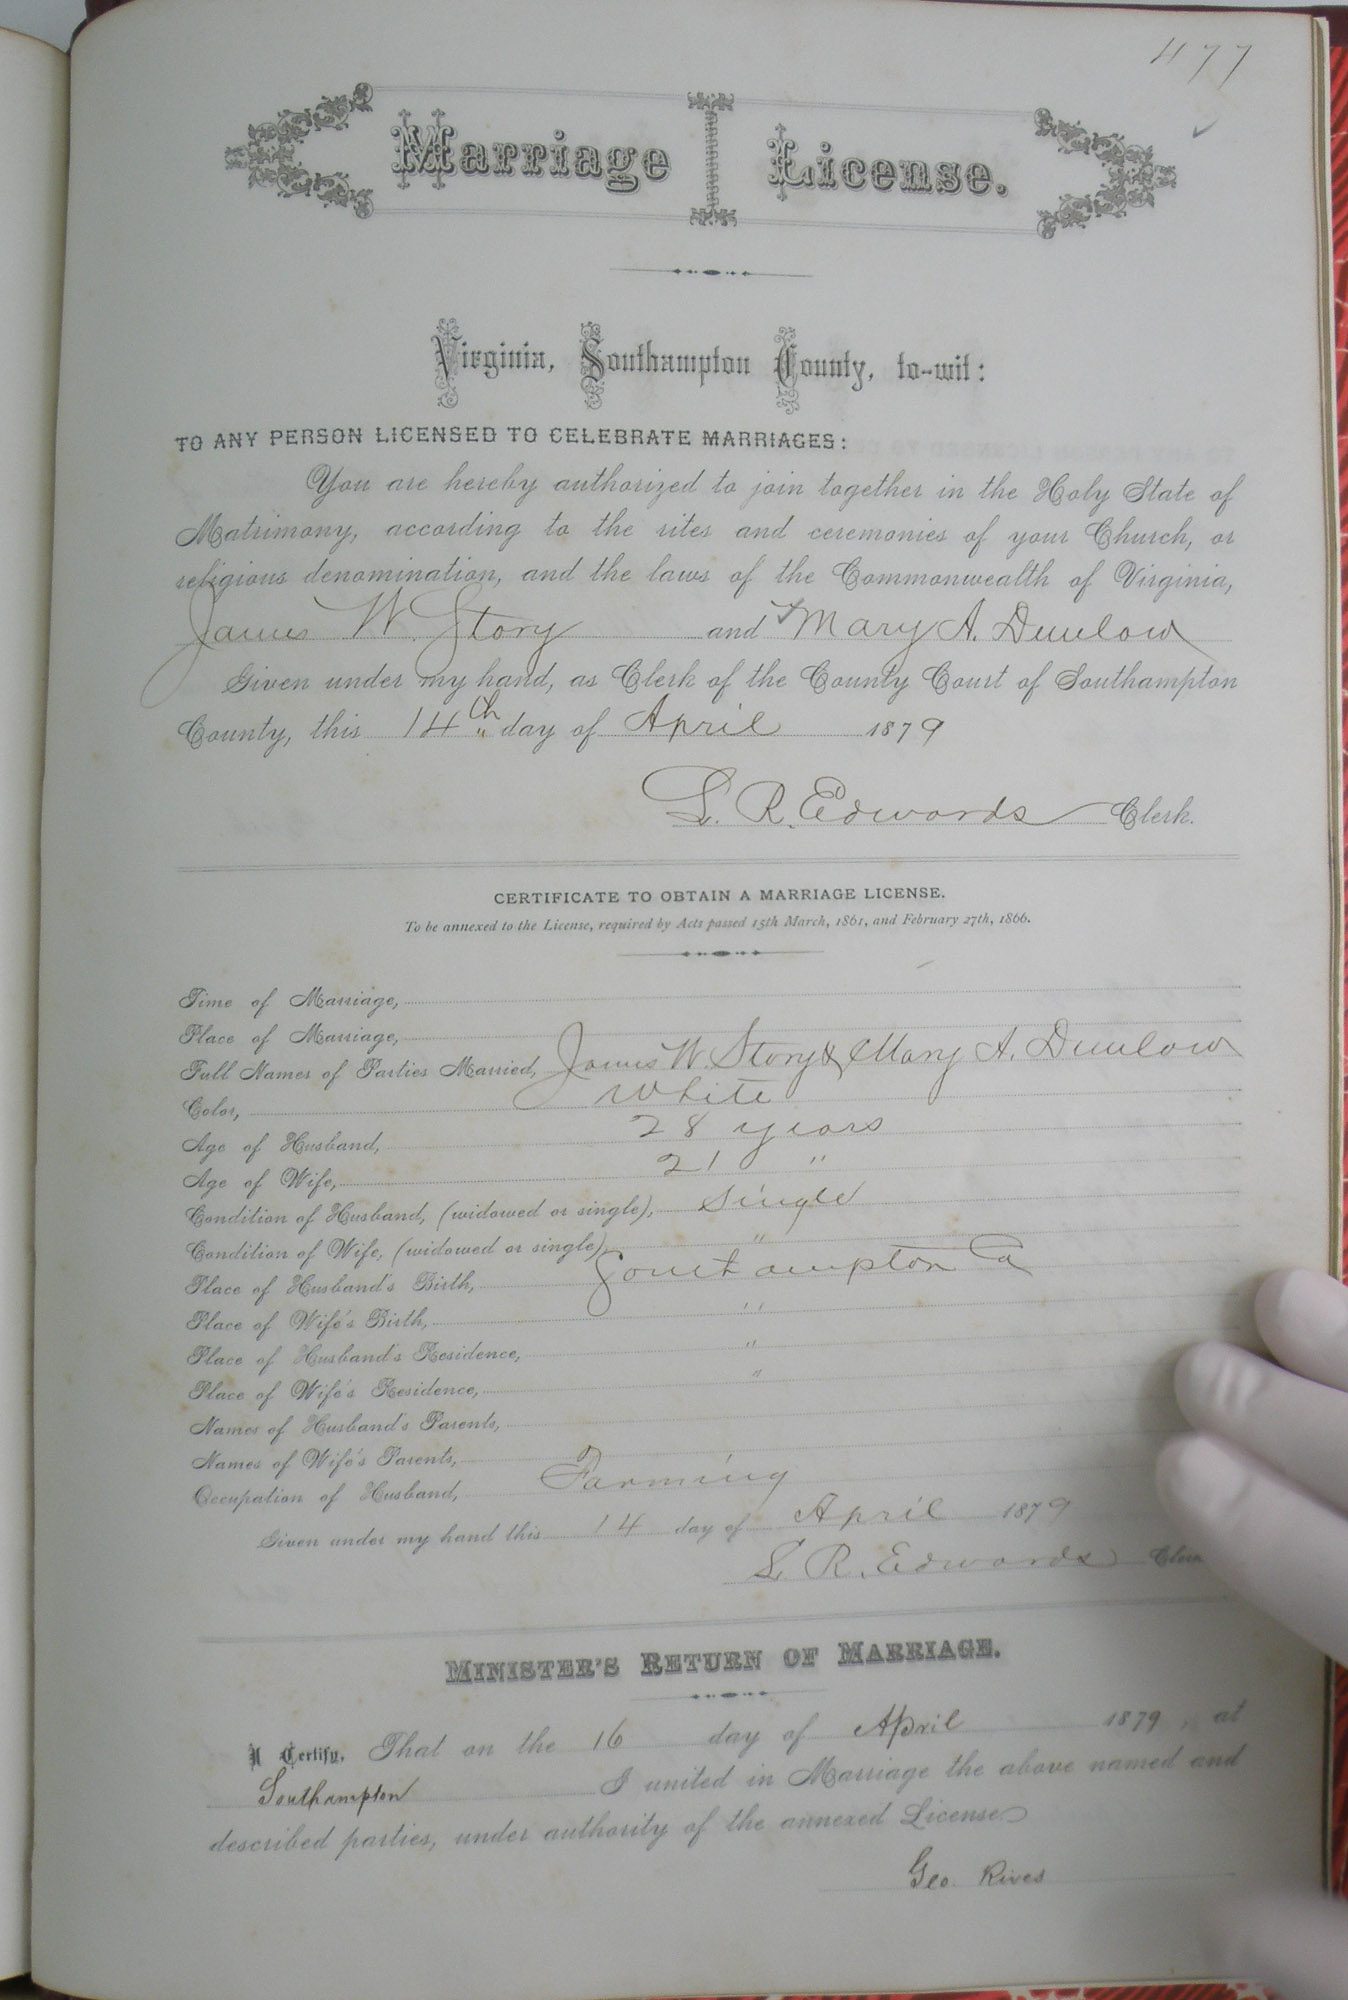 477
Marriage License.
Virginia, Southampton County, to-wit:
TO ANY PERSON LICENSED TO CELEBRATE MARRIAGES:
You are hereby authorized to join together in the Holy State of
Matrimony, according to the rites and ceremonies of your Church, or
religious denomination, and the laws of the Commonwealth of Virginia,
James W. Story and Mary A. Dunlow
Given under my hand, as Clerk of the County Court of Southampton
County, this 14th day of April 1879
L. R. Edwards Clerk.
CERTIFICATE TO OBTAIN A MARRIAGE LICENSE.
To be annexed to the License, required by Acts passed 15th March, 1861, and February 27th, 1866.
Time of Marriage,
Place of Marriage,
Full Names of Parties Married, James W. Story & Mary A. Dunlow
Color, White
Age of Husband, 28 years
Age of Wife, 21 "
Condition of Husband, (widowed or single), Single
Condition of Wife, (widowed or single), "
Place of Husband's Birth, Southampton Co
Place of Wife's Birth, "
Place of Husband's Residence, "
Place of Wife's Residence, "
Names of Husband's Parents,
Names of Wife's Parents,
Occupation of Husband, Farming
Given under my hand this 14 day of April 1879
L. R. Edwards Clerk
MINISTER'S RETURN OF MARRIAGE.
I Certify, That on the 16 day of April 1879, at
Southampton I united in Marriage the above named and
described parties, under authority of the annexed License.
Geo. Rives